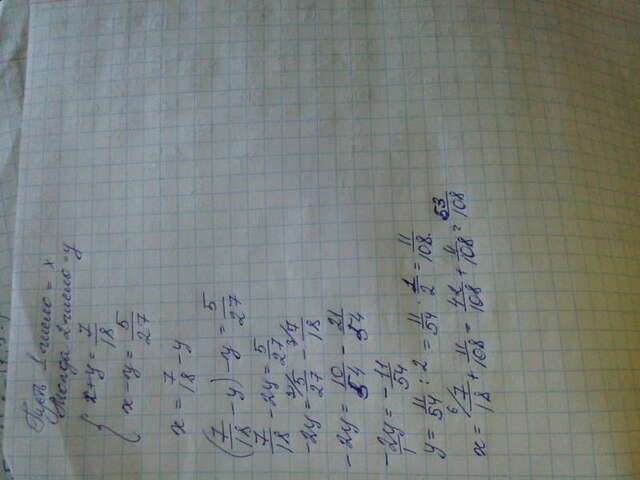 Пусть 1 число = x
Тогда 2 число = y
{ x+y = 7/18
x-y = 5/27
x = 7/18 - y
(7/18 - y) - y = 5/27
7/18 - 2y = 5/27
-2y = 5/27 - 7/18
-2y = 10/54 - 21/54
-2y/1 = -11/54
y = 11/54 : 2 = 11/54 · 1/2 = 11/108.
x = 7/18 + 11/108 = 42/108 + 11/108 = 53/108